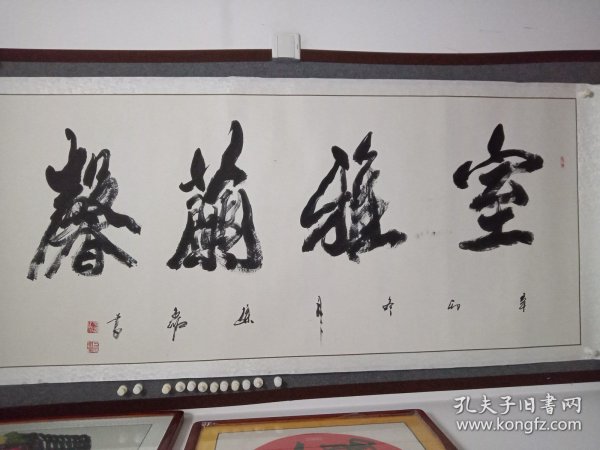 室雅蘭馨
辛卯冬月
書
孔夫子旧书网
www.kongfz.com